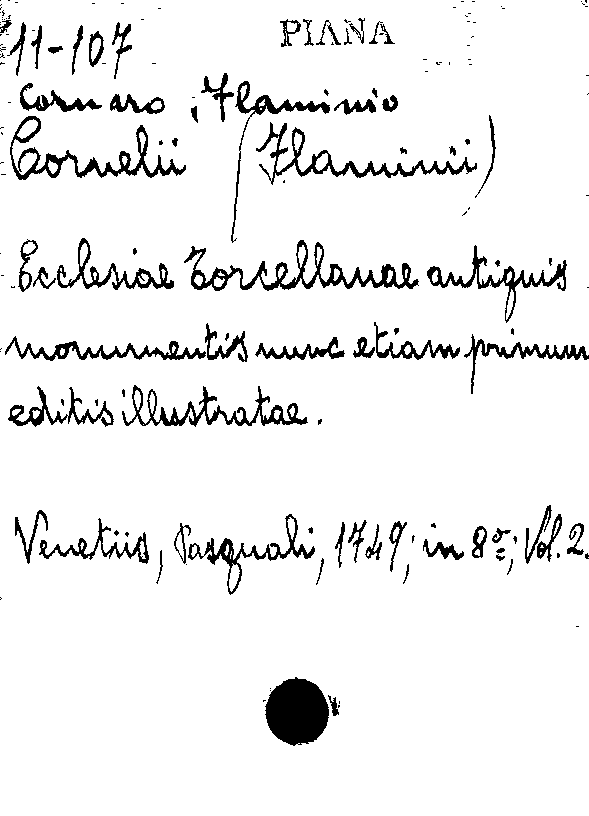 PIANA
11-107
Cornaro, Flaminio
Cornelii (Flaminii)
Ecclesiae Torcellanae antiquis
monumentis nunc etiam primum
editis illustratae.
Venetiis, Pasquali, 1749; in 8º; Vol. 2.